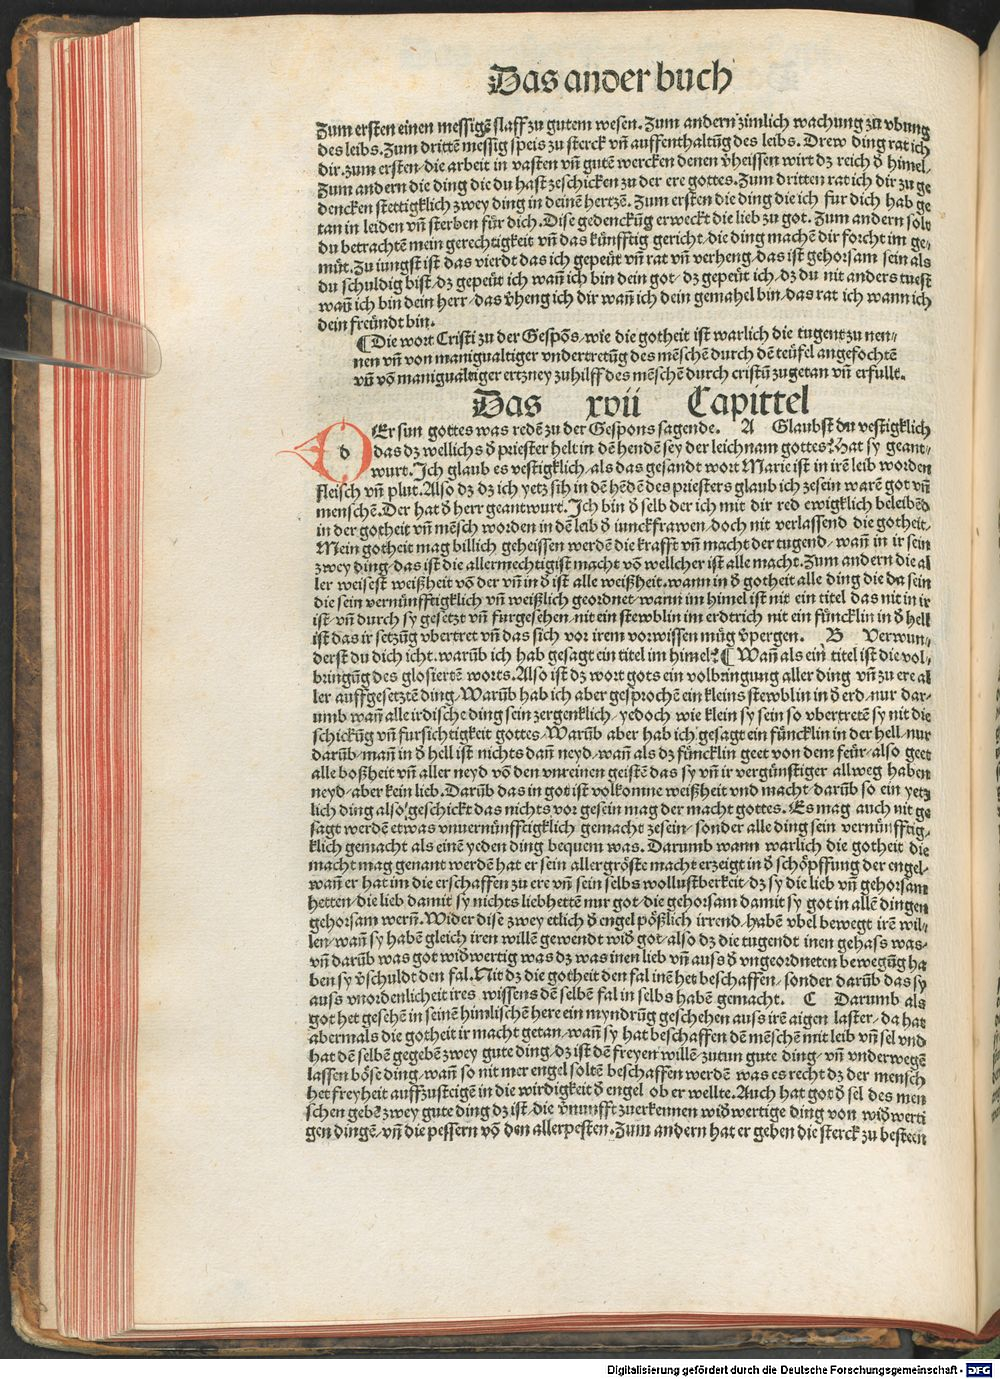 Das ander buch
Zum ersten einen messigē slaff zu gutem wesen. Zum andern zimlich wachung zu vbung
des leibs. Zum drittē messig speis zu sterck vñ auffenthaltūg des leibs. Drew ding rat ich
dir. zum ersten/die arbeit in vasten vñ gutē wercken denen v̄heissen wirt dz reich d̄ himel.
Zum andern die ding die du hast zeschicken zu der ere gottes. Zum dritten rat ich dir zu ge
dencken stettigklich zwey ding in deinē hertzē. Zum ersten die ding die ich fur dich hab ge
tan in leiden vñ sterben für dich. Dise gedenckūg erweckt die lieb zu got. Zum andern solt
du betrachtē mein gerechtigkeit vñ das künfftig gericht/die ding machē dir forcht im ge⸗
müt. Zu iungst ist das vierdt das ich gepeüt vñ rat vñ verheng/das ist gehorsam sein als
du schuldig bist/dz gepeüt ich wañ ich bin dein got/dz gepeüt ich/dz du nit anders tuest
wañ ich bin dein herr/das v̄heng ich dir wañ ich dein gemahel bin/das rat ich wann ich
dein freündt bin.
¶ Die wort Cristi zu der Gespōs/wie die gotheit ist warlich die tugent zu nen⸗
nen vñ von manigualtiger vndertretūg des mēschē durch dē teüfel angefochtē
vñ vō manigualtiger ertzney zuhilff des mēschē durch cristū zugetan vñ erfullt.
Das xvii Capittel
d Er sun gottes was redē zu der Gespons sagende. A Glaubst du vestigklich
das dz wellichs d̄ priester helt in dē hendē sey der leichnam gottes? Hat sy geant⸗
wurt. Ich glaub es vestigklich/als das gesandt wort Marie ist in irē leib worden
fleisch vñ plut. Also dz dz ich yetz sih in dē hēdē des priesters glaub ich zesein warē got vñ
menschē. Der hat d̄ herr geantwurt. Ich bin d̄ selb der ich mit dir red ewigklich beleibēd
in der gotheit vñ mēsch worden in dē leib d̄ iunckfrawen/doch nit verlassend die gotheit/
Mein gotheit mag billich geheissen werdē die krafft vñ macht der tugend/wañ in ir sein
zwey ding/das ist die allermechtigist macht vō wellcher ist alle macht. Zum andern die al
ler weisest weißheit vō der vñ in d̄ ist alle weißheit. wann in d̄ gotheit alle ding die da sein
die sein vernünfftigklich vñ weißlich geordnet/wann im himel ist nit ein titel das nit in ir
ist/vñ durch sy gesetzt vñ furgesehen/nit ein stewblin im erdtrich nit ein füncklin in d̄ hell
ist das ir setzūg vbertret vñ das sich vor irem vorwissen müg v̄pergen. B Verwun⸗
derst du dich icht. warūb ich hab gesagt ein titel im himel? ¶ Wañ als ein titel ist die vol⸗
bringūg des glosiertē worts. Also ist dz wort gots ein volbringung aller ding vñ zu ere al
ler auffgesetztē ding/Warūb hab ich aber gesprochē ein kleins stewblin in d̄ erd/nur dar⸗
umb wañ alle irdische ding sein zergenklich/yedoch wie klein sy sein so vbertretē sy nit die
schickūg vñ fursichtigkeit gottes/Warūb aber hab ich gesagt ein füncklin in der hell/nur
darūb/wañ in d̄ hell ist nichts dañ neyd/wañ als dz füncklin geet von dem feür/also geet
alle boßheit vñ aller neyd vō den vnreinen geistē das sy vñ ir vergünstiger allweg haben
neyd/aber kein lieb. Darūb das in got ist volkomne weißheit vnd macht/darūb so ein yetz
lich ding also geschickt das nichts vor gesein mag der macht gottes. Es mag auch nit ge
sagt werdē etwas vnuernünfftigklich gemacht zesein/sonder alle ding sein vernünfftig⸗
klich gemacht als einē yeden ding bequem was. Darumb wann warlich die gotheit die
macht mag genant werdē hat er sein allergröste macht erzeigt in d̄ schöpffung der engel⸗
wañ er hat im die erschaffen zu ere vñ sein selbs wollustberkeit/dz sy die lieb vñ gehorsam
hetten/die lieb damit sy nichts liebhettē nur got/die gehorsam damit sy got in allē dingen
gehorsam werñ. Wider dise zwey etlich d̄ engel pößlich irrend/habē vbel bewegt irē wil⸗
len/wañ sy habē gleich iren willē gewendt wid̄ got/also dz die tugendt inen gehass was⸗
vñ darūb was got wid̄wertig was dz was inen lieb vñ auss d̄ vngeordneten bewegūg ha
ben sy v̄schuldt den fal. Nit dz die gotheit den fal inē het beschaffen/sonder darūb das sy
auss vnordenlicheit ires wissens dē selbē fal in selbs habē gemacht. C Darumb als
got het gesehē in seinē himlischē here ein myndrūg geschehen auss irē aigen laster/da hat
abermals die gotheit ir macht getan/wañ sy hat beschaffen dē mēschē mit leib vñ sel vnd
hat dē selbē gegebē zwey gute ding/dz ist dē freyen willē/zutun gute ding/vñ vnderwegē
lassen böse ding/wañ so nit mer engel soltē beschaffen werdē was es recht dz der mensch
het freyheit auffzusteigē in die wirdigkeit d̄ engel ob er wellte. Auch hat got d̄ sel des men
schen gebē zwey gute ding dz ist/die v̄nunfft zuerkennen wid̄wertige ding von wid̄werti
gen dingē/vñ die pessern vō den allerpesten. Zum andern hat er geben die sterck zu besteen
Digitalisierung gefördert durch die Deutsche Forschungsgemeinschaft - DFG